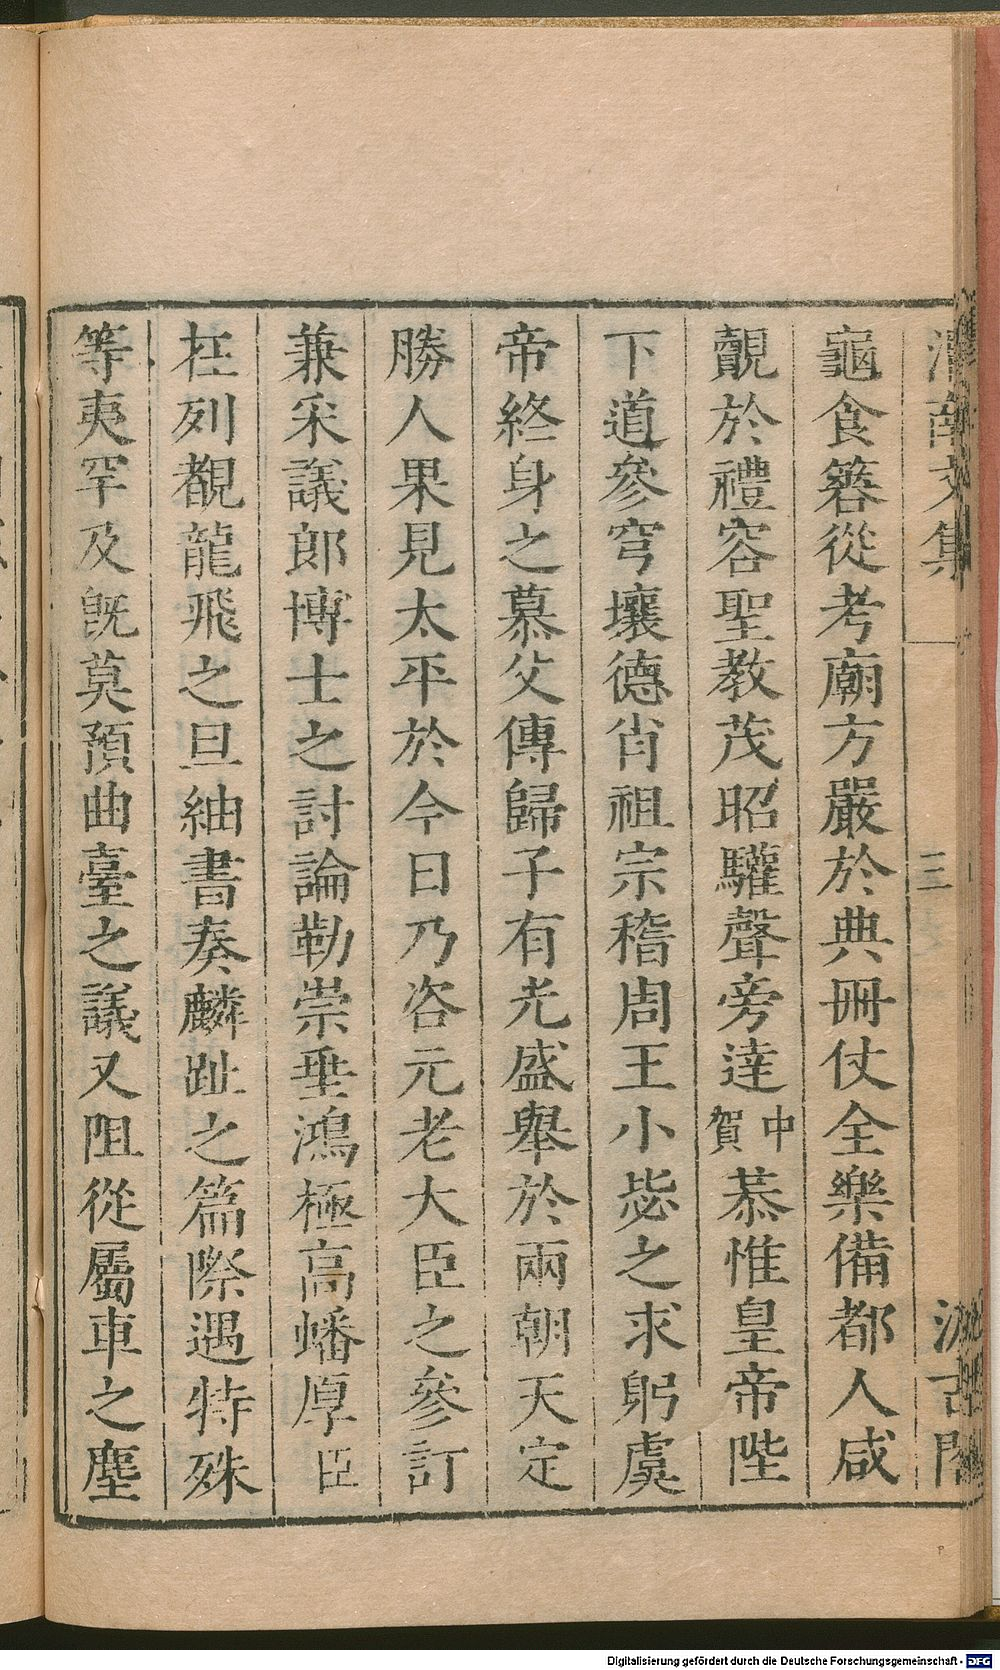 文集
三
龜食簭從考廟方嚴於典冊仗全樂備都人咸
覿於禮容聖教茂昭驩聲旁達中賀恭惟皇帝陛
下道參穹壤德肖祖宗稽周王小毖之求躬虞
帝終身之慕父傳歸子有光盛舉於兩朝天定
勝人果見太平於今日乃咨元老大臣之參訂
兼采議郎博士之討論勒崇垂鴻極高蟠厚臣
枉列覩龍飛之旦紬書奏麟趾之篇際遇特殊
等夷罕及旣莫預曲臺之議又阻從屬車之塵
Digitalisierung gefördert durch die Deutsche Forschungsgemeinschaft - DFG